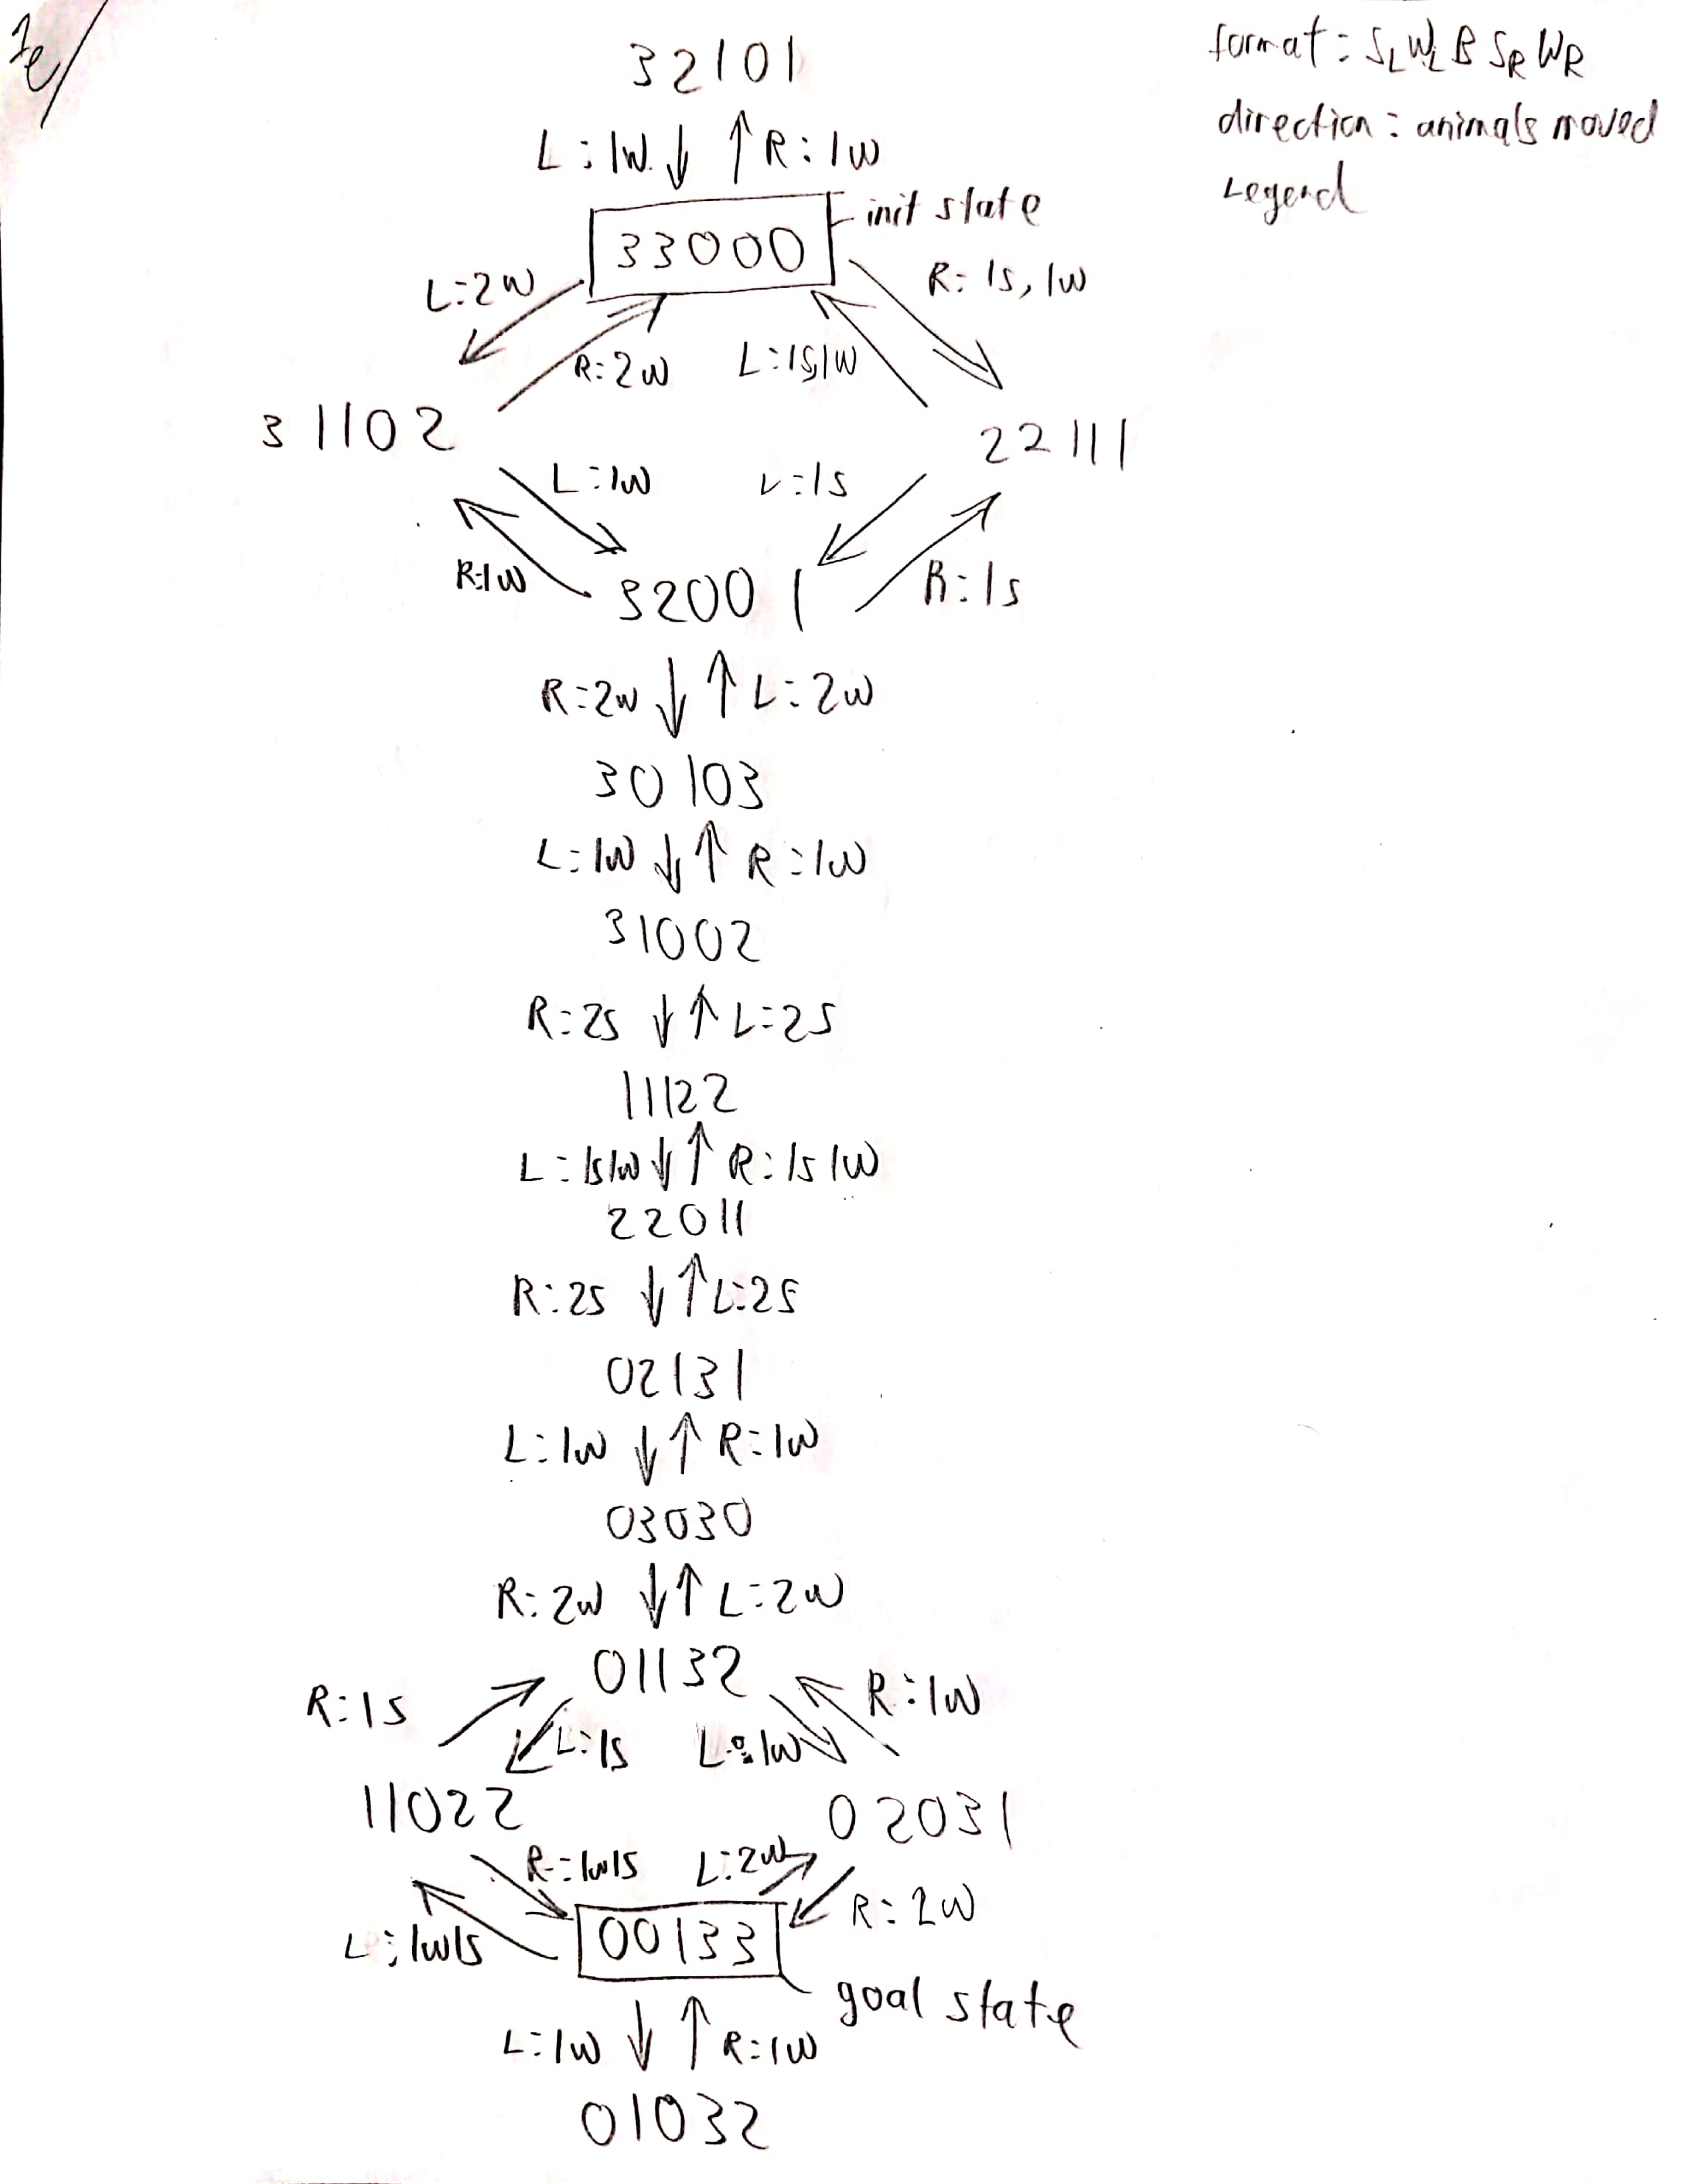 1e/
format: SLWLB SRWR
direction: animals moved
Legend
32101
L:1W ↓ ↑R:1W
init state
33000
L:2W
R:1s,1W
R:2W
L:1s,1W
31102
22111
L:1W
L:1s
R:1W
R:1s
32001
R:2W ↓ ↑ L:2W
30103
L:1W ↓↑ R:1W
31002
R:2s ↓↑ L:2s
11122
L:1s1W ↓↑ R:1s1W
22011
R:2s ↓↑ L:2s
02131
L:1W ↓↑ R:1W
03030
R:2W ↓↑ L:2W
01132
R:1s
R:1W
L:1s
L:1W
11022
02031
R:1W1s
L:2W
R:2W
L:1W1s
00133
goal state
L:1W ↓ ↑ R:1W
01032